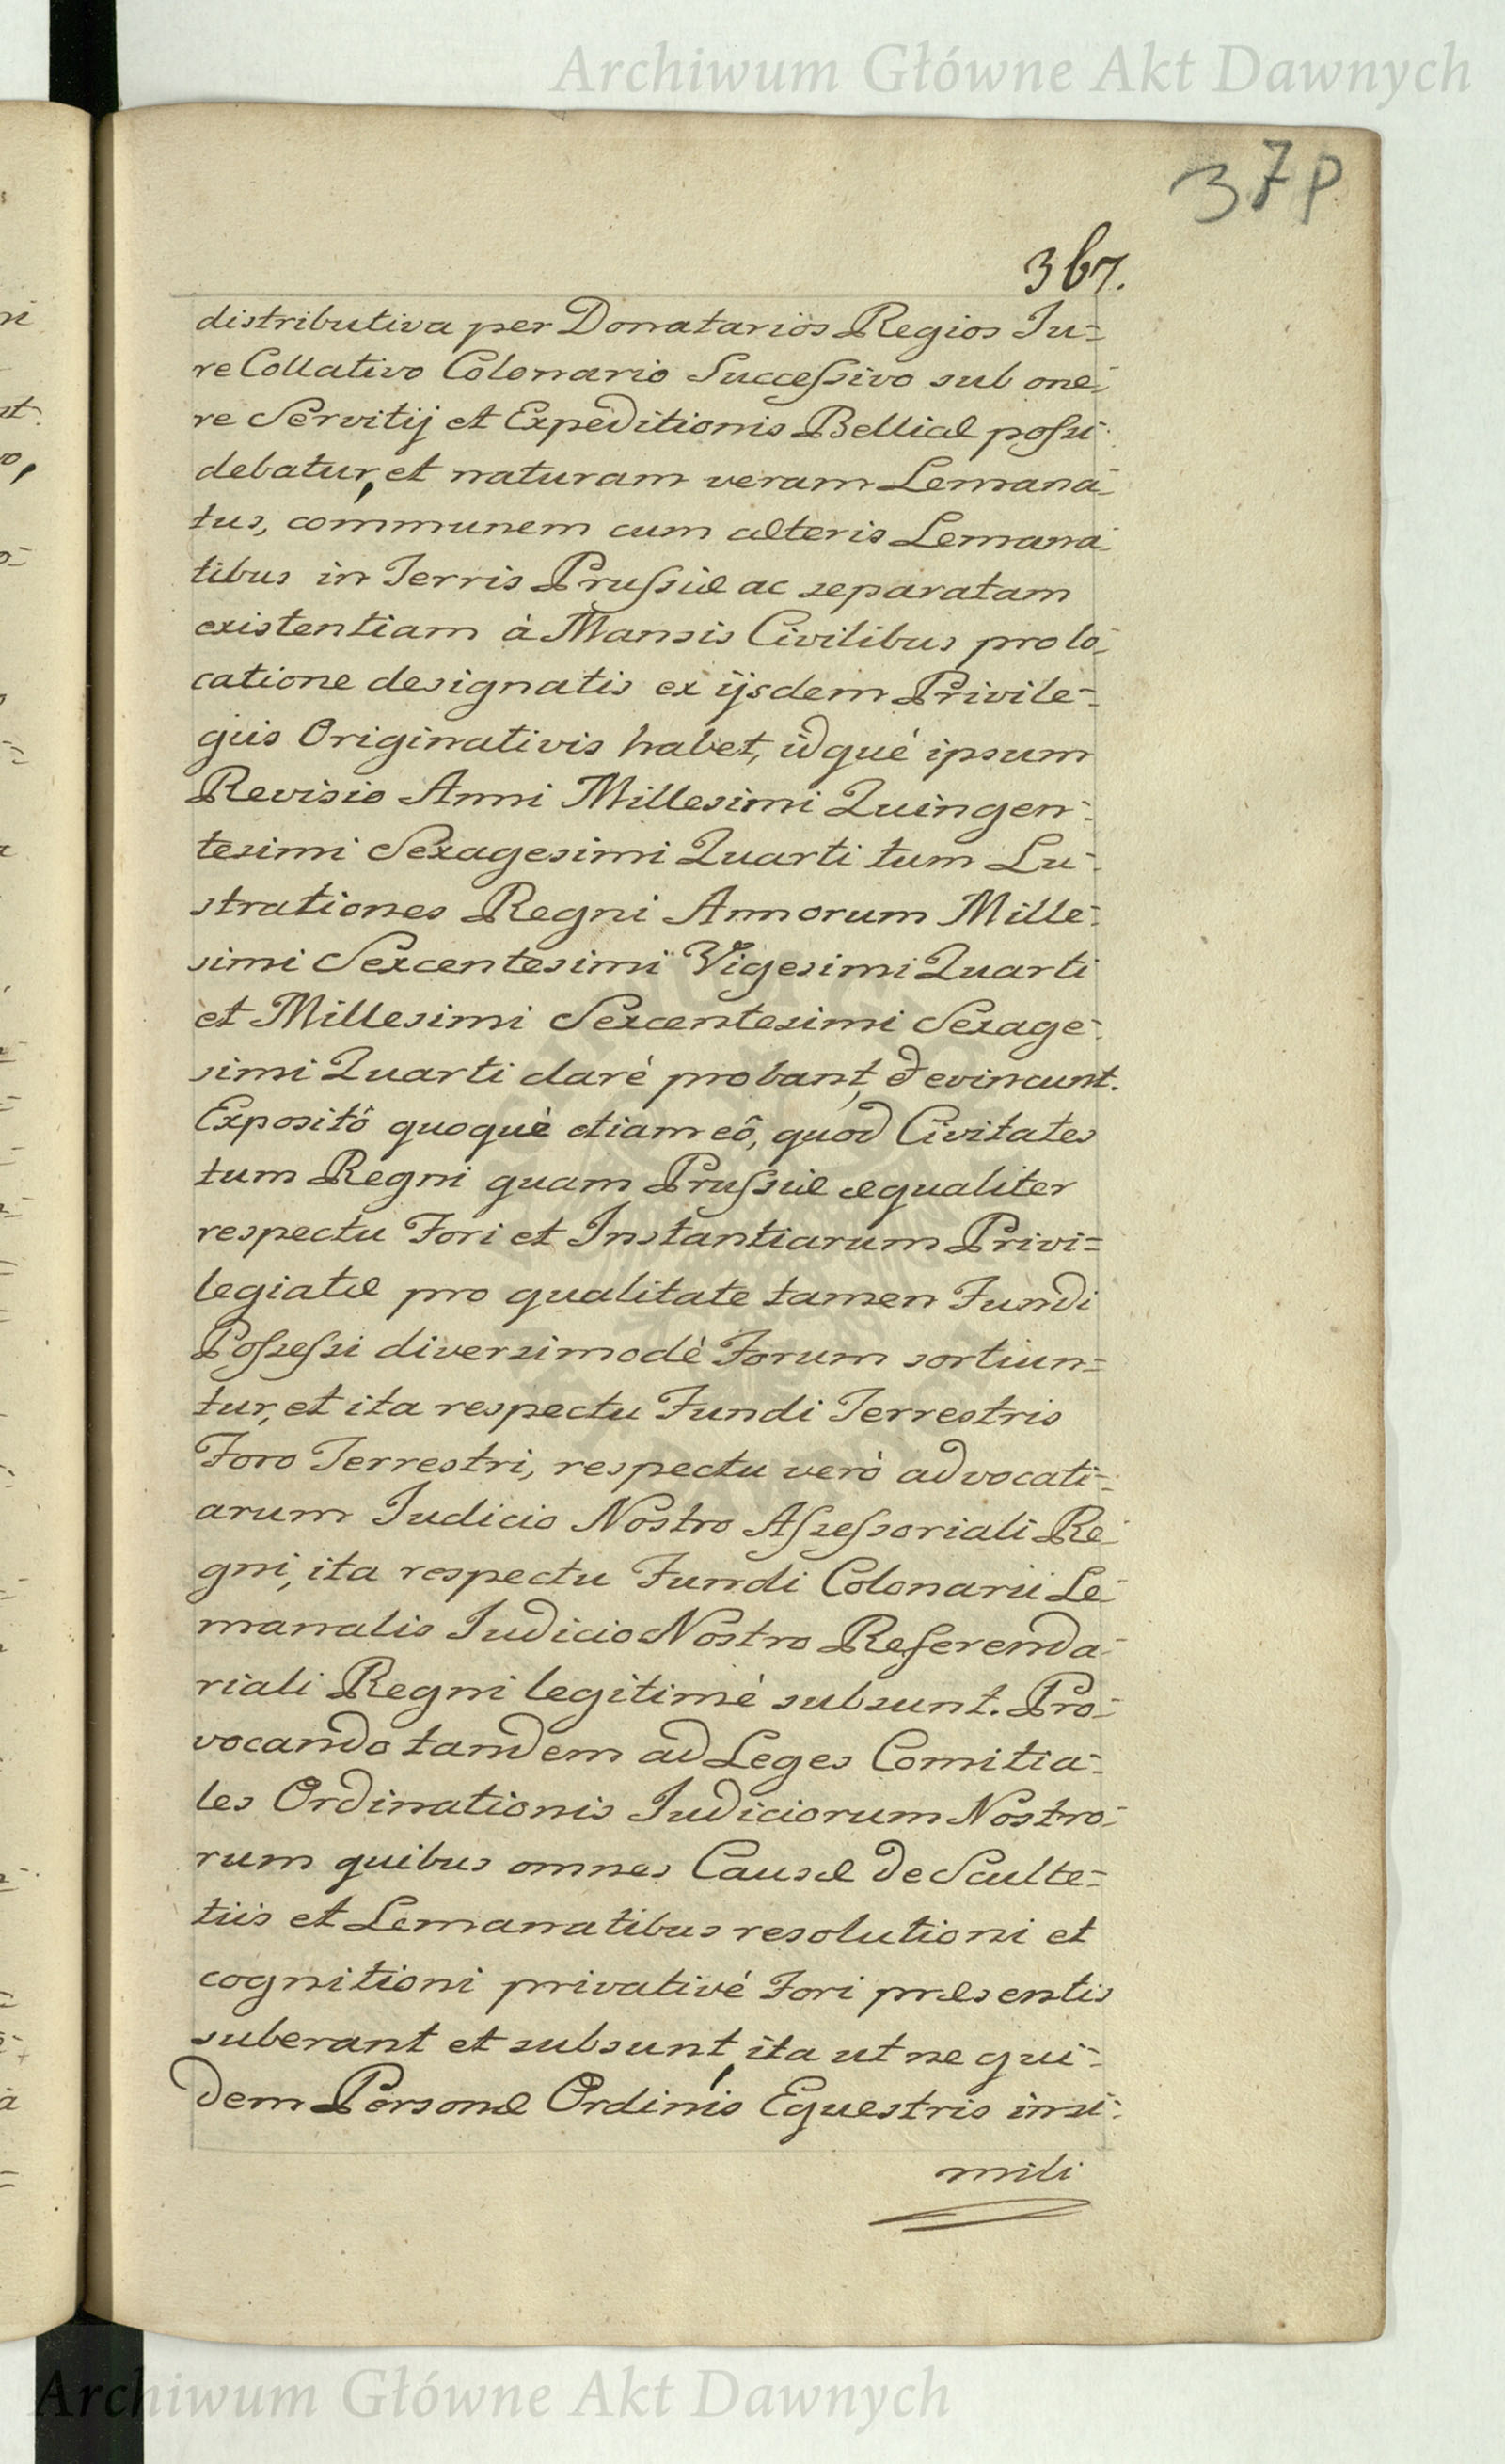 Archiwum Główne Akt Dawnych
37p
367.
distributiva per Donatarios Regios Ju=
re Collativo Colonario Successivo sub one=
re Servitij et Expeditionis Bellicæ possi=
debatur, et naturam veram Lemana=
tus, communem cum cæteris Lemana=
tibus in Terris Prussiæ ac separatam
existentiam à Mansis Civilibus pro lo=
catione designatis ex ijsdem Privile=
giis Originativis habet, idquè ipsum
Revisio Anni Millesimi Quingen=
tesimi Sexagesimi Quarti tum Lu=
strationes Regni Annorum Mille=
simi Sexcentesimi Vigesimi Quarti
et Millesimi Sexcentesimi Sexage=
simi Quarti clarè probant, & evincunt.
Expositô quoquè etiam eô, quod Civitates
tum Regni quam Prussiæ æqualiter
respectu Fori et Instantiarum Privi=
legiatæ pro qualitate tamen Fundi
Possessi diversimodè Forum sortiun=
tur, et ita respectu Fundi Terrestris
Foro Terrestri, respectu verò advocati=
arum Judicio Nostro Assessoriali Re=
gni, ita respectu Fundi Colonarii Le=
manalis Judicio Nostro Referenda=
riali Regni legitimè subsunt. Pro=
vocando tandem ad Leges Comitia=
les Ordinationis Judiciorum Nostro=
rum quibus omnes Causæ de Sculte=
tiis et Lemanatibus resolutioni et
cognitioni privativè Fori præsentis
suberant et subsunt, ita ut ne qui=
dem Personæ Ordinis Equestris insi=
mili
Archiwum Główne Akt Dawnych